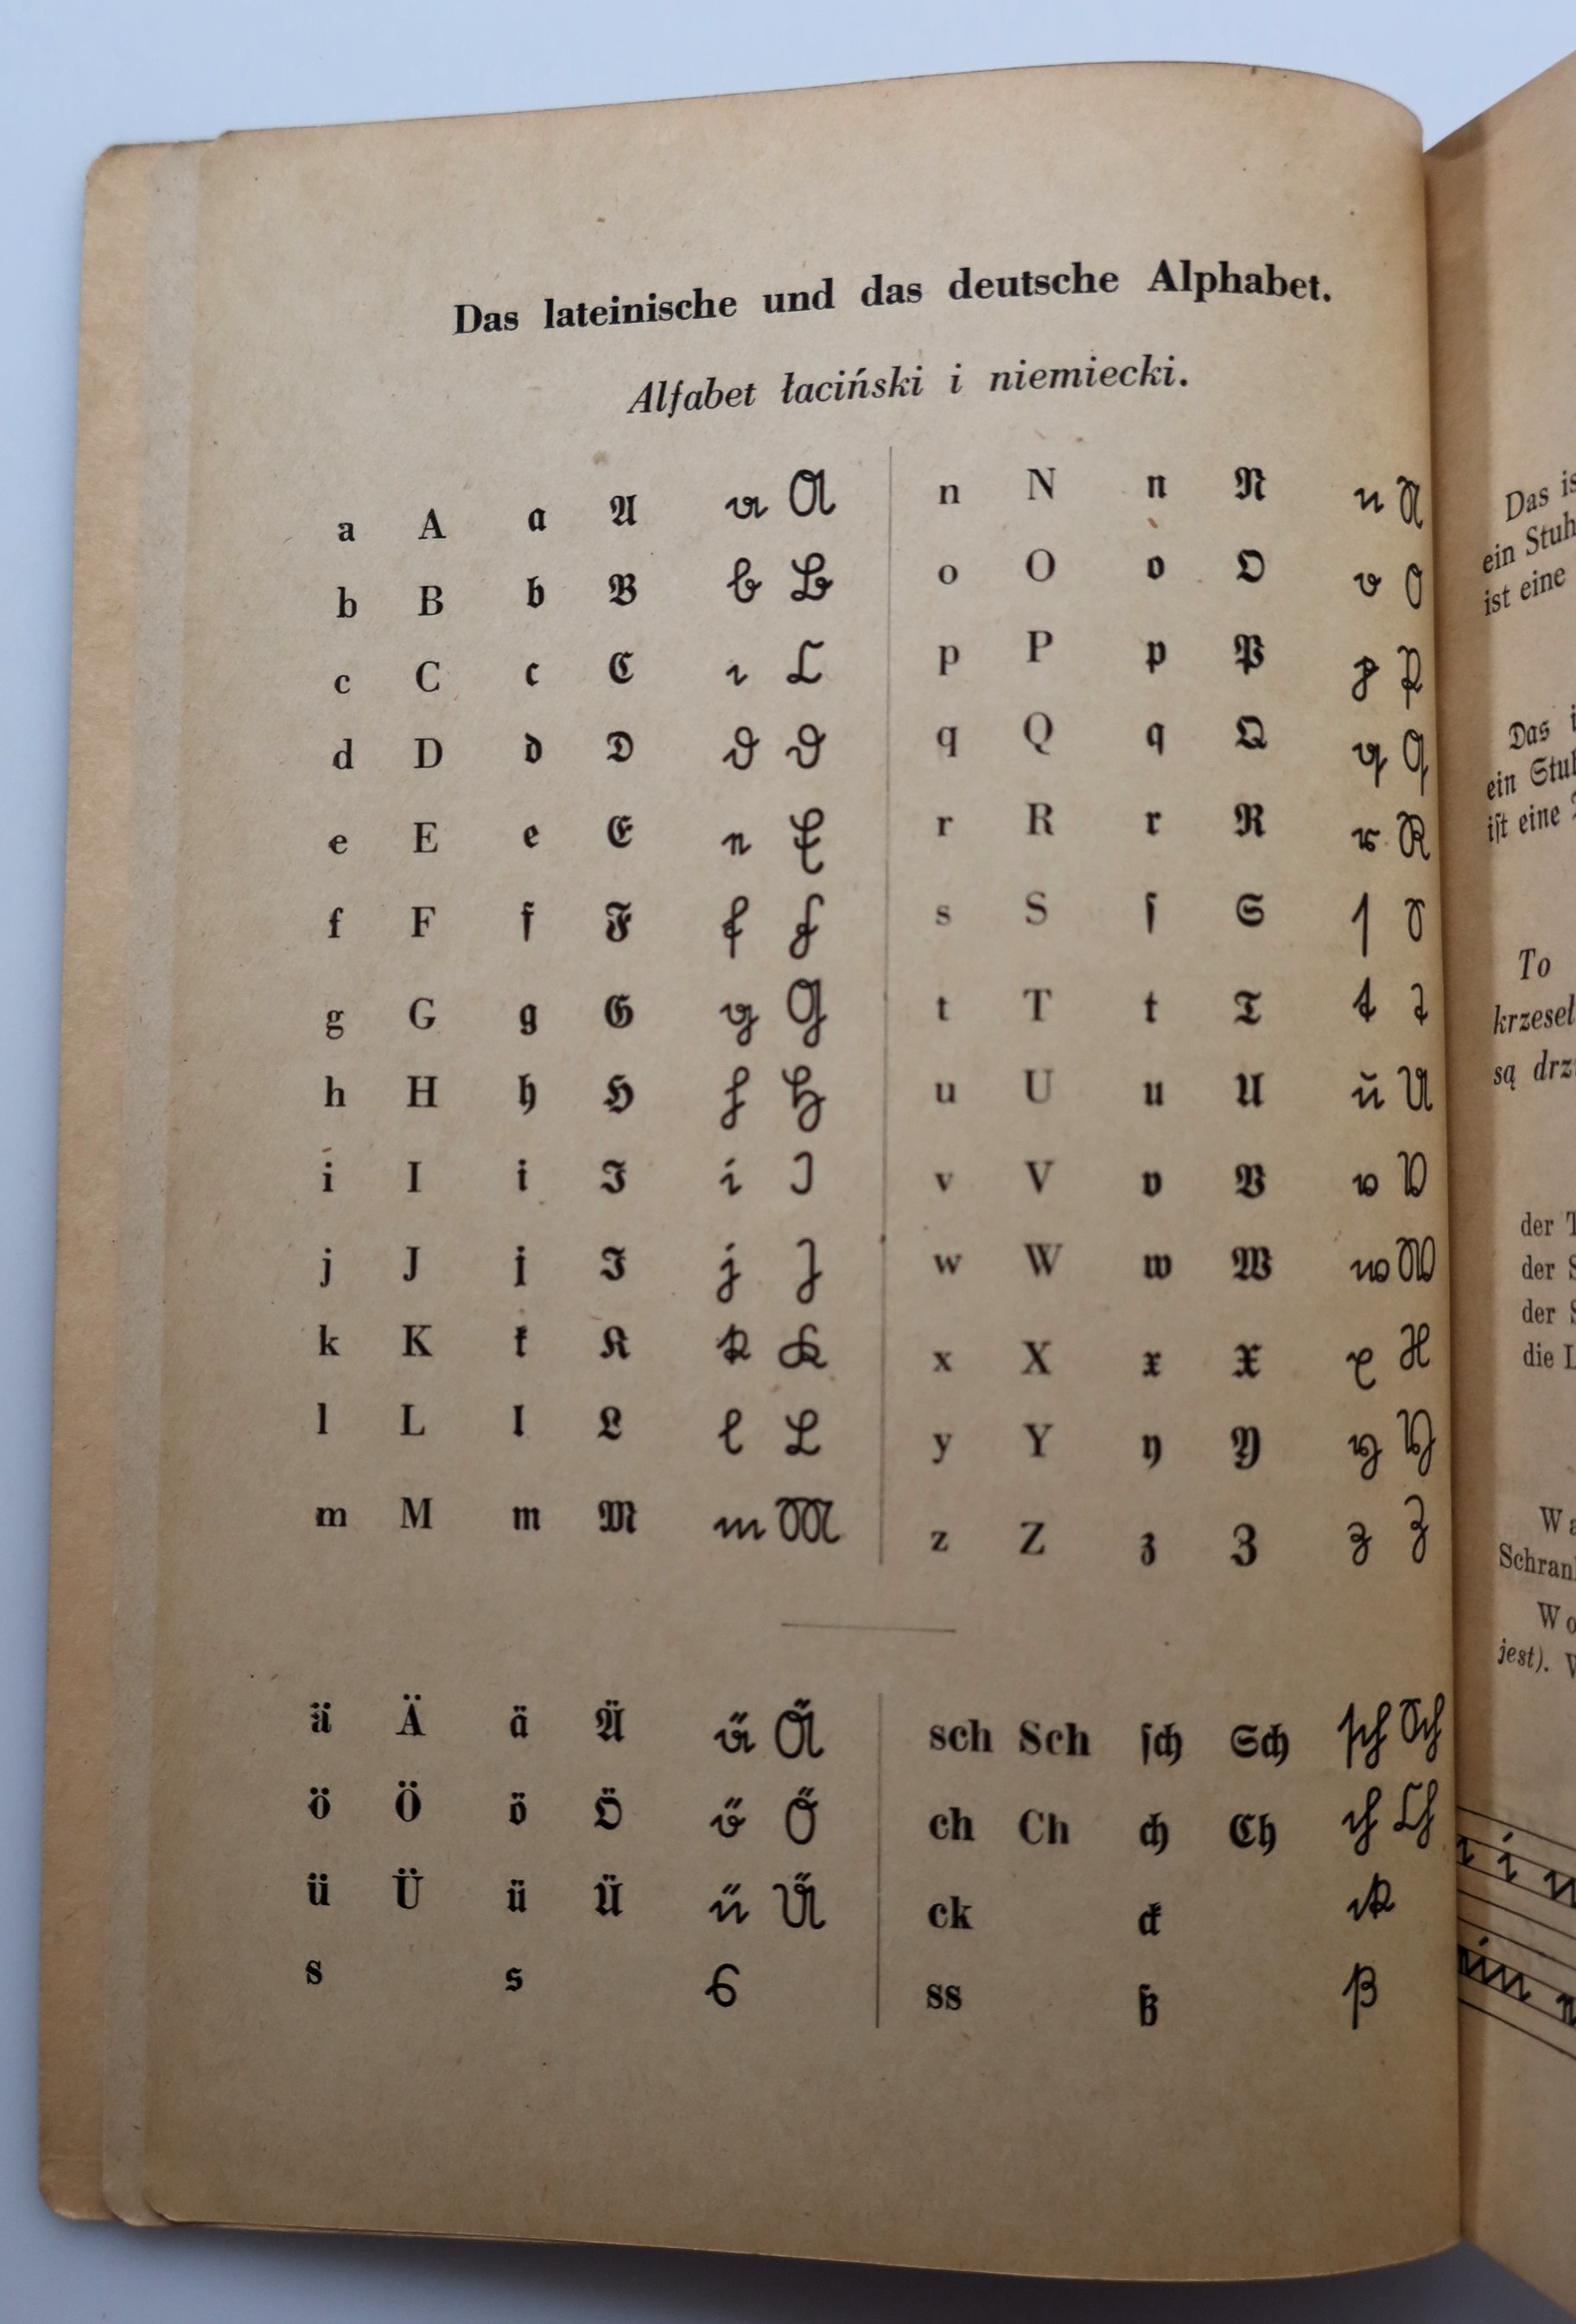 Das lateinische und das deutsche Alphabet.
Alfabet łaciński i niemiecki.
a A a A a A
b B b B b B
c C c C c C
d D d D d D
e E e E e E
f F f F f F
g G g G g G
h H h H h H
i I i I i I
j J j J j J
k K k K k K
l L l L l L
m M m M m M
n N n N n N
o O o O o O
p P p P p P
q Q q Q q Q
r R r R r R
s S ſ S ſ S
t T t T t T
u U u U u U
v V v V v V
w W w W w W
x X x X x X
y Y y Y y Y
z Z z Z z Z
ä Ä ä Ä ä Ä
ö Ö ö Ö ö Ö
ü Ü ü Ü ü Ü
s s s
sch Sch ſch Sch ſch Sch
ch Ch ch Ch ch Ch
ck ck ck
ss ß ß
Das
ein
ist eine
Das
ein
iſt eine
To
są
der
der
der
die
jest).